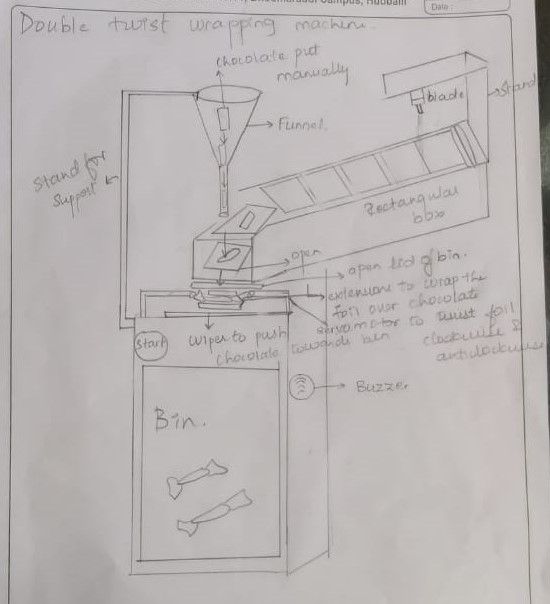 Campus, Hubballi
Date
Double twist wrapping machine.
chocolate put
manually
blade
stand
Funnel.
Stand for
support
Rectangular
box
open
open lid of bin.
extensions to wrap the
foil over chocolate
servomotor to twist foil
clockwise &
anticlockwise
start
wiper to push
chocolate towards bin
Buzzer
Bin.